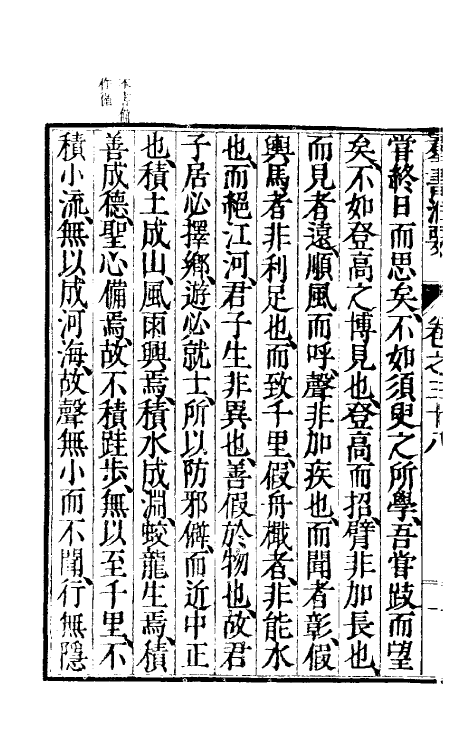 羣書治要 卷之三十八
嘗終日而思矣、不如須臾之所學、吾嘗跂而望
矣、不如登高之博見也、登高而招、臂非加長也、
而見者遠、順風而呼、聲非加疾也、而聞者彰、假
輿馬者、非利足也、而致千里、假舟檝者、非能水
也、而絕江河、君子生非異也、善假於物也、故君
子居必擇鄉、遊必就士、所以防邪僻、而近中正
也、積土成山、風雨興焉、積水成淵、蛟龍生焉、積
善成德、聖心備焉、故不積跬步、無以至千里、不
積小流、無以成河海、故聲無小而不聞、行無隱
本書備
作循